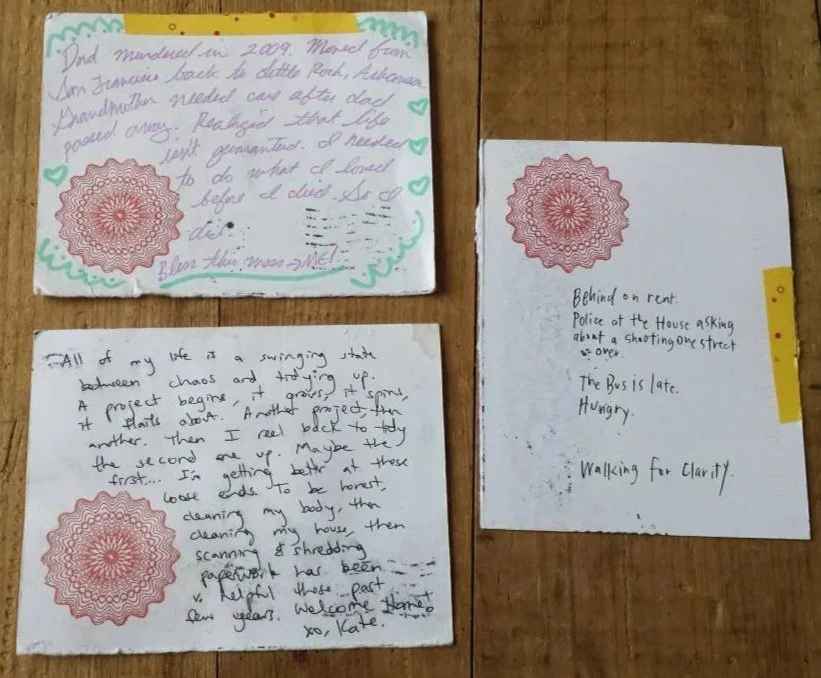 Dad murdered in 2009. Moved from
San Francisco back to Little Rock, Arkansas
Grandmother needed care after dad
passed away. Realized that life
isn't guaranteed. I needed
to do what I loved
before I died. So I
did.
Bless this mess → ME!
All of my life is a swinging state
between chaos and tidying up.
A project begins, it grows, it spins,
it flails about. Another project, then
another. Then I reel back to tidy
the second one up. Maybe the
first... I'm getting better at these
loose ends. To be honest,
cleaning my body, then
cleaning my house, then
scanning & shredding
paperwork has been
v. helpful these past
few years. Welcome Home!
xo, Kate.
Behind on rent.
Police at the House asking
about a shooting one street
over.
The Bus is late.
Hungry.
Walking for Clarity.